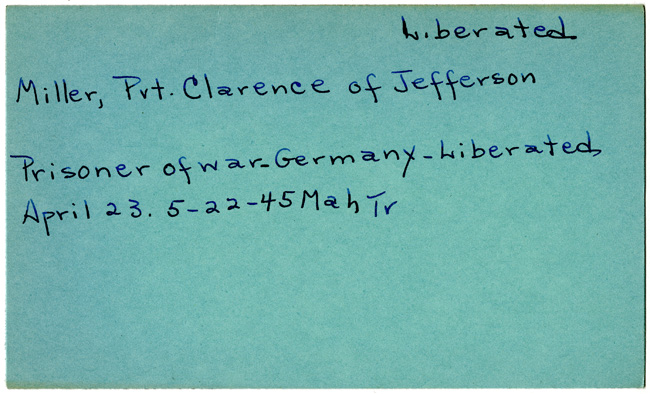 Liberated
Miller, Pvt. Clarence of Jefferson
Prisoner of war-Germany-Liberated,
April 23. 5-22-45 Mah Tr